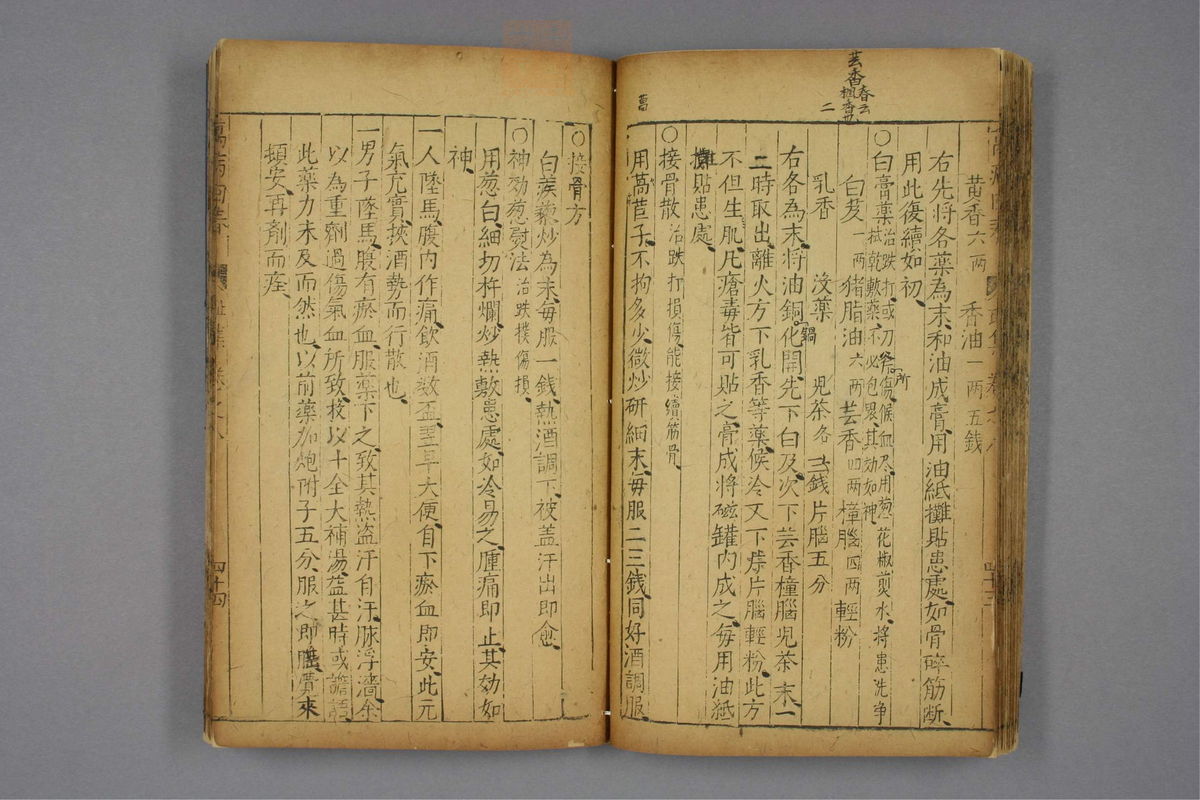 黄香六两　香油一两五銭
右先将各藥為末和油成膏用油紙攤貼患處如骨碎筋断
用此復續如初
○白膏藥治跌打或刀斧所傷候血尽用葱花椒煎水将患洗争
拭乾敷藥不必包裹其効如神
白芨一两　猪脂油六两　芸香四两　樟腦四两　輕粉
乳香　没藥　児茶各二銭　片腦五分
右各為末将油銅鍋化開先下白及次下芸香樟腦児茶末一
二時取出離火方下乳香等藥候冷又下片腦輕粉此方
不但生肌凡瘡毒皆可貼之膏成将磁罐内成之毎用油紙
攤貼患處
○接骨散治跌打損傷能接續筋骨
用萵苣子不拘多少微炒研細末毎服二三銭同好酒調服
萵
芸香
二
四十三
○接骨方
白蒺藜炒為末毎服一銭熱酒調下被盖汗出即愈
○神効葱熨法治跌撲傷損
用葱白細切杵爛炒熱敷患處如冷易之腫痛即止其効如
神
一人墜馬腹内作痛飲酒数盃翌早大便自下瘀血即安此元
氣充實挾酒勢而行散也
一男子墜馬腹有瘀血服藥下之致其熱盗汗自汗脉浮濇余
以為重劑過傷氣血所致投以十全大補湯益甚時或譫語
此藥力未及而然也以前藥加炮附子五分服之即睡覺來
頓安再劑而痊
萬病回春
四十四